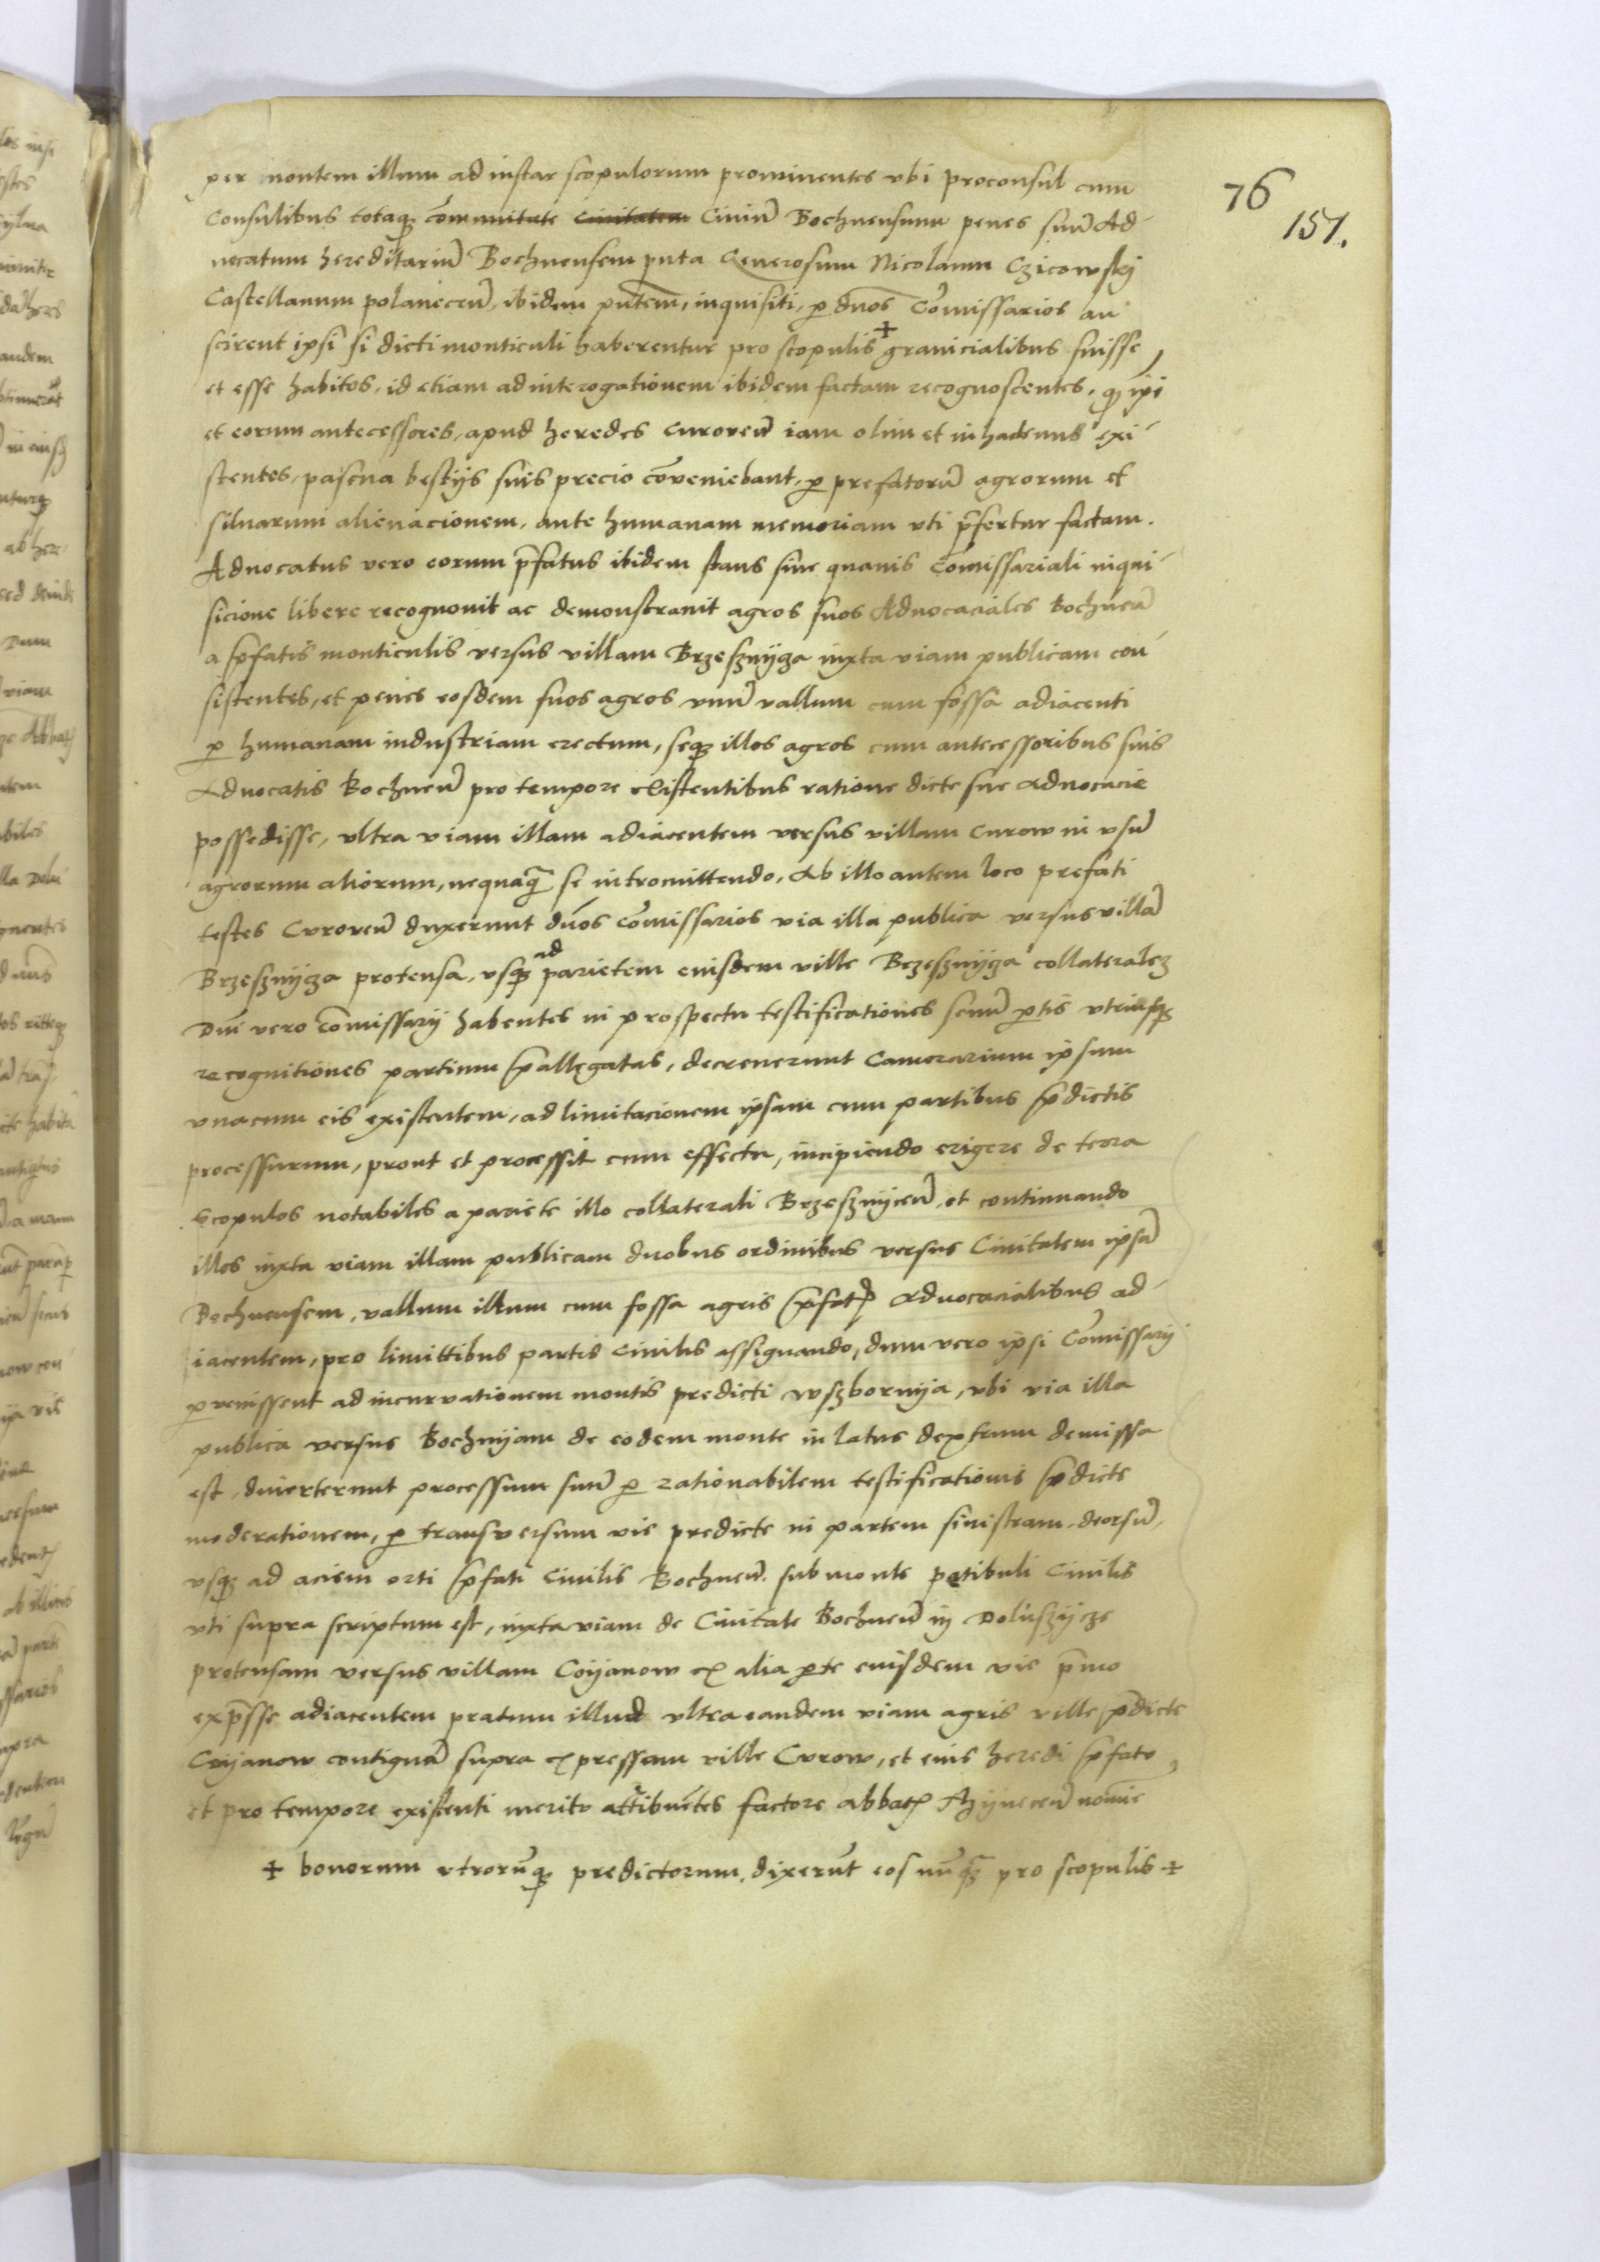 76
151.
per montem illum ad instar scopulorum prominentes vbi proconsul cum
Consulibus totaq₃ com̄unitate Ciuitatem Ciuiū Bochnensium penes suū Ad-
uocatum hereditariū Bochnensem puta Generosum Nicolaum Czicowskij
Castellanum polanecen̄, ibidem pn̄tem, inquisiti, ꝑ dn̄os Com̄issarios an
scirent ipsi si dicti monticuli haberentur pro scopulis + granicialibus fuisse,
et esse habitos, id etiam ad interogationem ibidem factam recognoscentes, qꝫ ipi
et eorum antecessores, apud heredes Curowen̄ iam olim et in hactenus exi-
stentes, pascua bestijs suis precio cōueniebant, ꝑ prefatorū agrorum et
siluarum alienacionem, ante humanam memoriam vti p̄fertur factam.
Aduocatus vero eorum p̄fatus ibidem stans sine quauis Comissariali inqui-
sicione libere recognouit ac demonstrauit agros suos Aduocaciales Bochnen̄
a p̄fatis monticulis versus villam Brzesznijcza iuxta viam publicam con-
sistentes, et penes eosdem suos agros vnū vallum cum fossa adiacenti
ꝑ humanam industriam erectum, seqꝫ illos agros cum antecessoribus suis
Aduocatis Bochnen̄ pro tempore existentibus ratione dicte sue Aduocacie
possedisse, vltra viam illam adiacentem versus villam Curow in vsū
agrorum aliorum, nequaq̄ se intromittendo, Ab illo autem loco prefati
testes Curowen̄ duxerunt dn̄os Com̄issarios via illa publica versus villā
Brzesznijcza protensa, vsqꝫ ad parietem eiusdem ville Brzesznijcza collateralez
Dn̄i vero Com̄issarij habentes in prospectu testificationes senū ꝑtis vtriusqꝫ
recognitiones partium p̄allegatas, decreuerunt Camerarium ipsum
vnacum eis existentem, ad limitacionem ipsam cum partibus p̄dictis
processurum, prout et processit cum effectu, incipiendo erigere de terra
Scopulos notabiles a pariete illo collaterali Brzesznijcen̄, et continuando
illos iuxta viam illam publicam duobus ordinibus versus Ciuitatem ipsā
Bochnensem, vallum illum cum fossa agris p̄fatꝭ Aduocacialibus ad-
iacentem, pro limittibus partis Ciuilis assignando, dum vero ipsi Com̄issarij
ꝑuenissent ad incuruationem montis predicti Wszbornija, vbi via illa
publica versus Bochnijam de eodem monte in latus dextrum demissa
est, diuerterunt processum suū ꝑ rationabilem testificationis p̄dicte
moderationem, ꝑ transuersum vie predicte in partem sinistram, deorsū,
vsqꝫ ad aciem orti p̄fati Ciuilis Bochnen̄ sub monte patibuli Ciuilis
vti supra scriptum est, iuxta viam de Ciuitate Bochnen̄ in Doluszijcze
protensam versus villam Coijanow ex alia ꝑte eiusdem vie p̄mo
exp̄sse adiacentem pratum illud vltra eandem viam agris ville p̄dicte
Coijanow contiguā supra expressam ville Curow, et eius heredi p̄fato,
et pro tempore existenti merito attribuētes factore abbatꝭ Thijnecen̄ nomine
+ bonorum vtrorūqꝫ predictorum, dixerūt eos nūqꝫ pro scopulis +